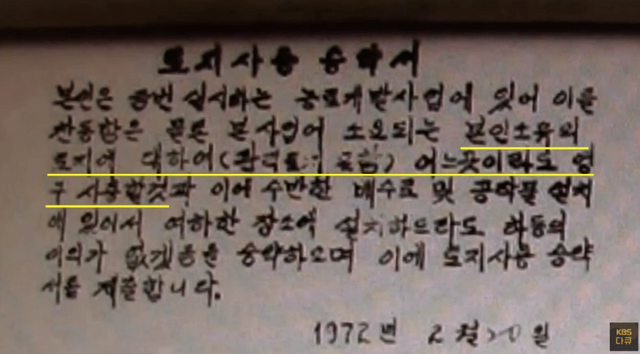 토지사용 승락서
본인은 금번 실시하는 농로개발사업에 있어 이를
찬동함은 물론 본 사업에 소요되는 본인소유의
토지에 대하여(관리토지 포함) 어느곳이라도 영
구 사용할것과 이에 수반한 배수로 및 공작물 설치
에 있어서 여하한 장소에 설치하드라도 하등의
이의가 없겠음을 승약하오며 이에 토지사용 승락
서를 제출합니다.
1972년 2월 20일
KBS
다큐